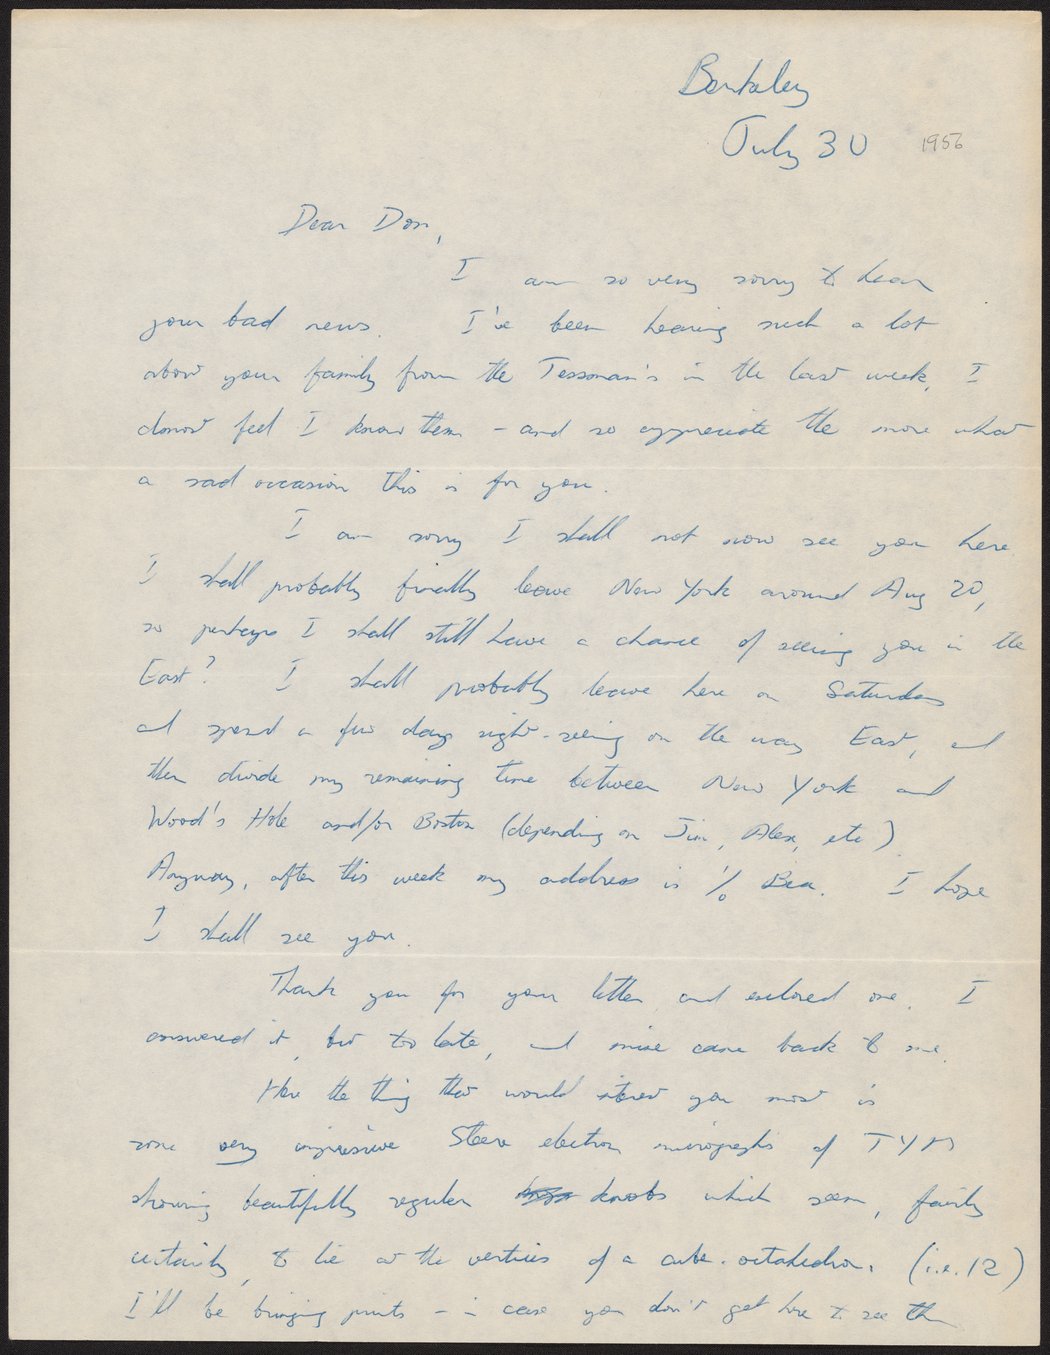 Berkeley
July 30 1956
Dear Don,
I am so very sorry to hear
your bad news. I've been hearing such a lot
about your family from the Tessman's in the last week, I
almost feel I know them - and so appreciate the more what
a sad occasion this is for you.
I am sorry I shall not now see you here.
I shall probably finally leave New York around Aug 20,
so perhaps I shall still have a chance of seeing you in the
East? I shall probably leave here on Saturday
and spend a few days sight-seeing on the way East, and
then divide my remaining time between New York and
Wood's Hole and/or Boston (depending on Jim, Alex, etc)
Anyway, after this week my address is c/o Bea. I hope
I shall see you.
Thank you for your letter and enclosed one. I
answered it, but too late, and mine came back to me.
Here the thing that would interest you most is
some very impressive Steere electron micrographs of TYM
showing beautifully regular knobs which seem, fairly
certainly, to lie at the vertices of a cube-octahedron. (i.e. 12)
I'll be bringing prints - in case you don't get here to see them